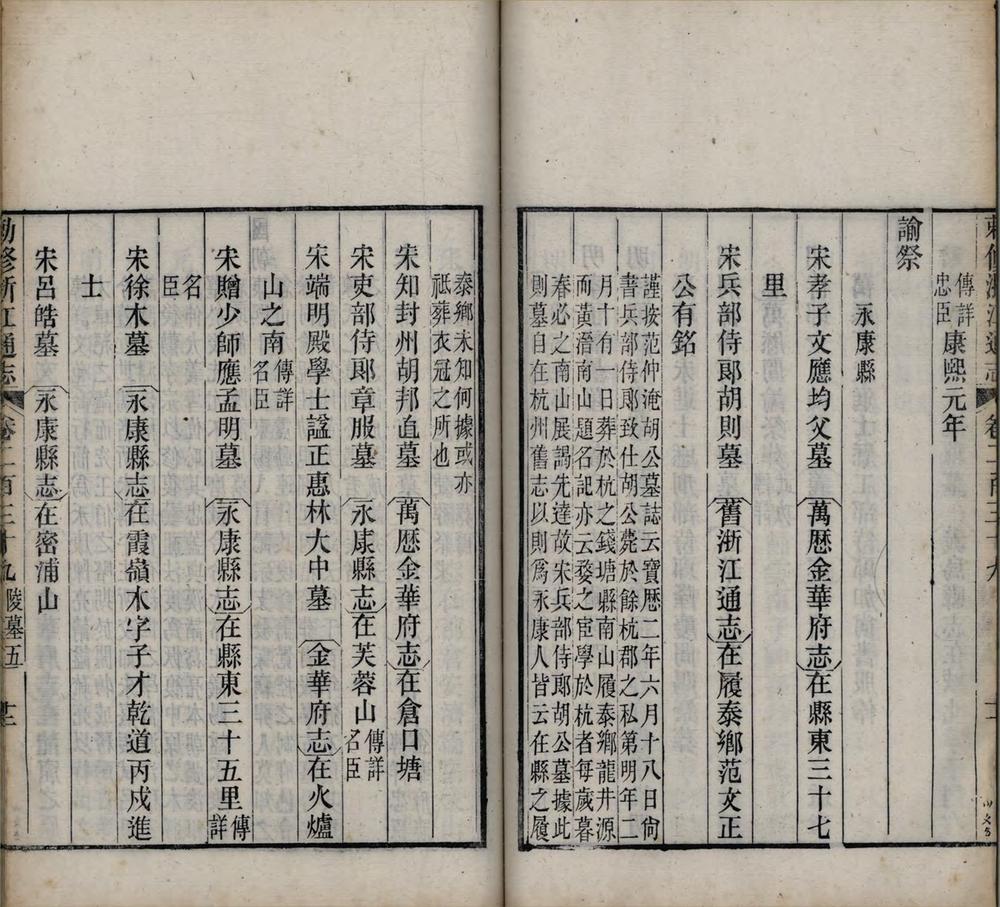 敕修浙江通志 卷二百三十九
傳詳
忠臣
康熙元年
諭祭
永康縣
宋孝子文應均父墓 萬歷金華府志在縣東三十七
里
宋兵部侍郎胡則墓 舊浙江通志在履泰鄉范文正
公有銘
謹按范仲淹胡公墓誌云寶歷二年六月十八日尙
書兵部侍郎致仕胡公薨於餘杭郡之私第明年二
月十有一日葬於杭之錢塘縣南山履泰鄉龍井源
而黃潛南山題名記亦云婺之宦學於杭者每歲暮
春必之南山展謁先達故宋兵部侍郎胡公墓據此
則墓自在杭州舊志以則爲永康人皆云在縣之履
泰鄉未知何據或亦
祗葬衣冠之所也
宋知封州胡邦直墓 萬歷金華府志在倉口塘
宋吏部侍郎章服墓 永康縣志在芙蓉山傳詳
名臣
宋端明殿學士諡正惠林大中墓 金華府志在火爐
山之南傳詳
名臣
宋贈少師應孟明墓 永康縣志在縣東三十五里傳詳
名
臣
宋徐木墓 永康縣志在霞嶺木字子才乾道丙戌進
士
宋呂皓墓 永康縣志在密浦山
勅修浙江通志 卷二百三十九 陵墓五